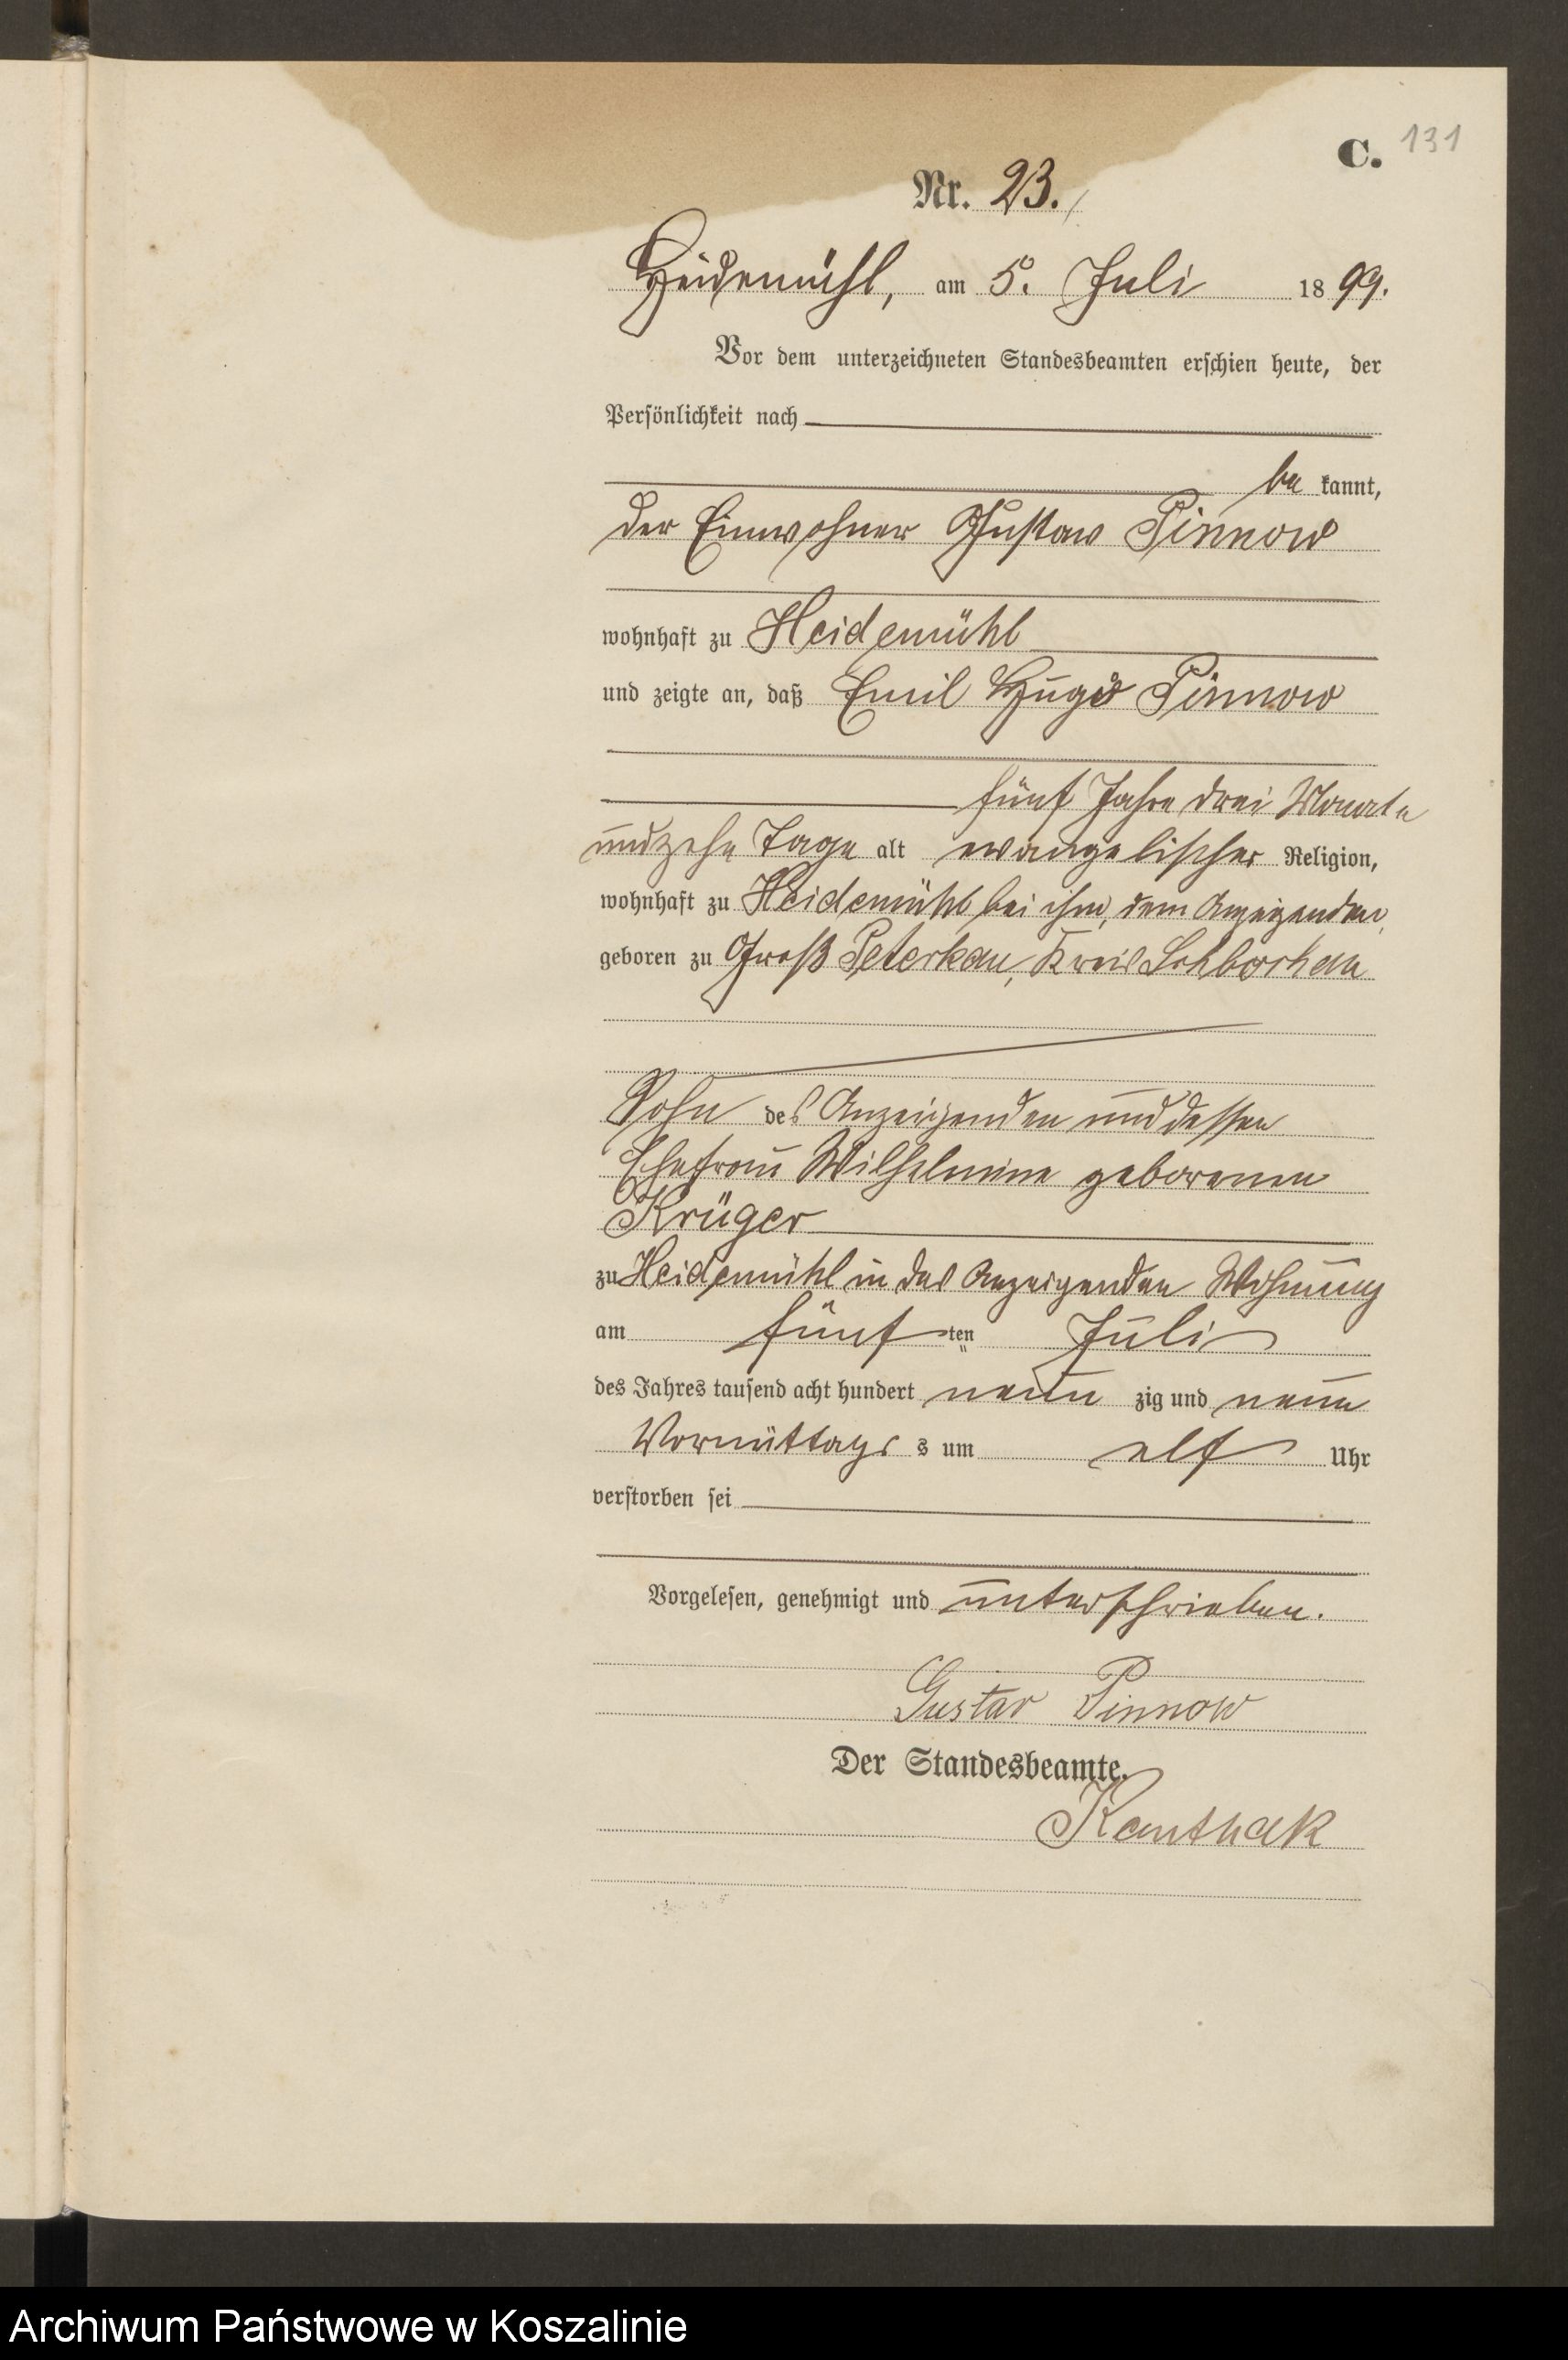 C. 131
Nr. 23.
Heidemühl, am 5. Juli 1899.
Vor dem unterzeichneten Standesbeamten erschien heute, der
Persönlichkeit nach
be kannt,
der Einwohner Gustav Pinnow
wohnhaft zu Heidemühl
und zeigte an, daß Emil Hugo Pinnow
fünf Jahre drei Monate
und zehn Tage alt evangelischer Religion,
wohnhaft zu Heidemühl bei ihm, dem Anzeigenden,
geboren zu Groß Peterkau, Kreis Schlochau
Sohn des Anzeigenden und dessen
Ehefrau Wilhelmine geborenen
Krüger
zu Heidemühl in des Anzeigenden Wohnung
am fünf ten Juli
des Jahres tausend acht hundert neun zig und neun
Vormittags s um elf Uhr
verstorben sei
Vorgelesen, genehmigt und unterschrieben.
Gustav Pinnow
Der Standesbeamte.
Kanthak
Archiwum Państwowe w Koszalinie